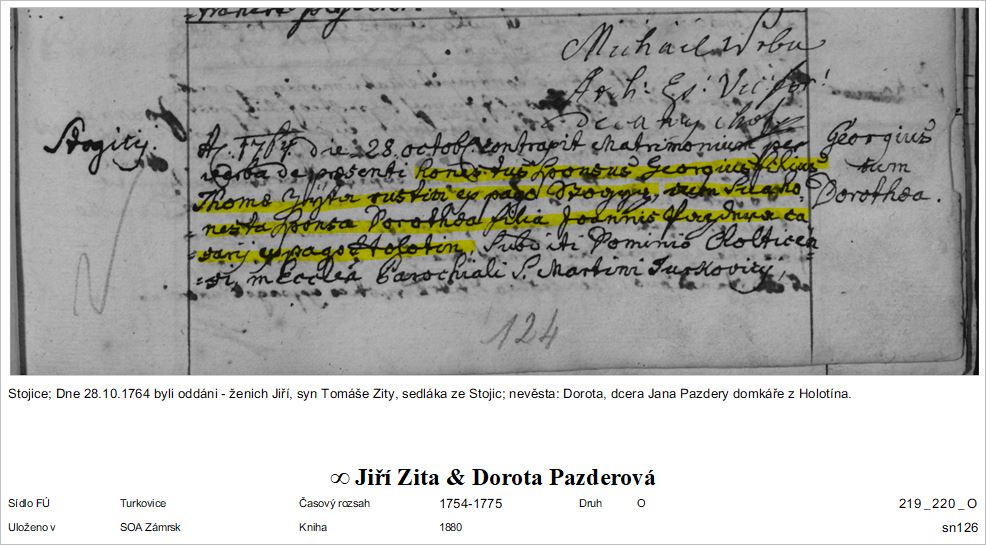 Michael Wrba
Stogity.
A. 1764 die 28. octob. contraxit Matrimonium per
verba de praesenti honestus Sponsus Georgius filius
Thomae rustici ex pago cum sua ho
nesta Sponsa Dorothea filia Joannis ca
sarij ex pago Holotin Subditi Dominio Cholticen
si, in Ecclea Parochiali S. Martini Turkovicy,
Georgius
cum
Dorothea.
124
Stojice; Dne 28.10.1764 byli oddáni - ženich Jiří, syn Tomáše Zity, sedláka ze Stojic; nevěsta: Dorota, dcera Jana Pazdery domkáře z Holotína.
∞ Jiří Zita & Dorota Pazderová
Sídlo FÚ Turkovice Časový rozsah 1754-1775 Druh O 219_220_O
Uloženo v SOA Zámrsk Kniha 1880 sn126